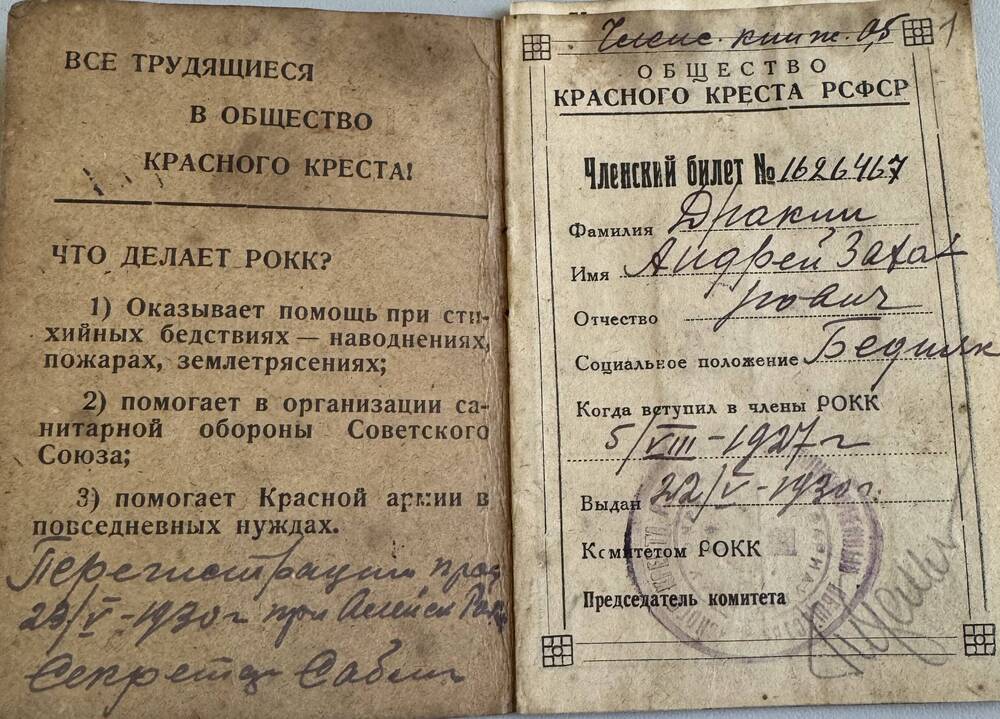 ВСЕ ТРУДЯЩИЕСЯ
В ОБЩЕСТВО
КРАСНОГО КРЕСТА!
ЧТО ДЕЛАЕТ РОКК?
1) Оказывает помощь при сти-
хийных бедствиях — наводнениях,
пожарах, землетрясениях;
2) помогает в организации са-
нитарной обороны Советского
Союза;
3) помогает Красной армии в
повседневных нуждах.
Перегистрации
23/V-1930 г при Алейск
Секретар
Членс. книж. 1
ОБЩЕСТВО
КРАСНОГО КРЕСТА РСФСР
Членский билет № 1626467
Фамилия Дракин
Имя Андрей Заха-
Отчество рович
Социальное положение Бедняк
Когда вступил в члены РОКК
5/VIII-1927 г
Выдан 22/V-1930 г.
Комитетом РОКК
Председатель комитета